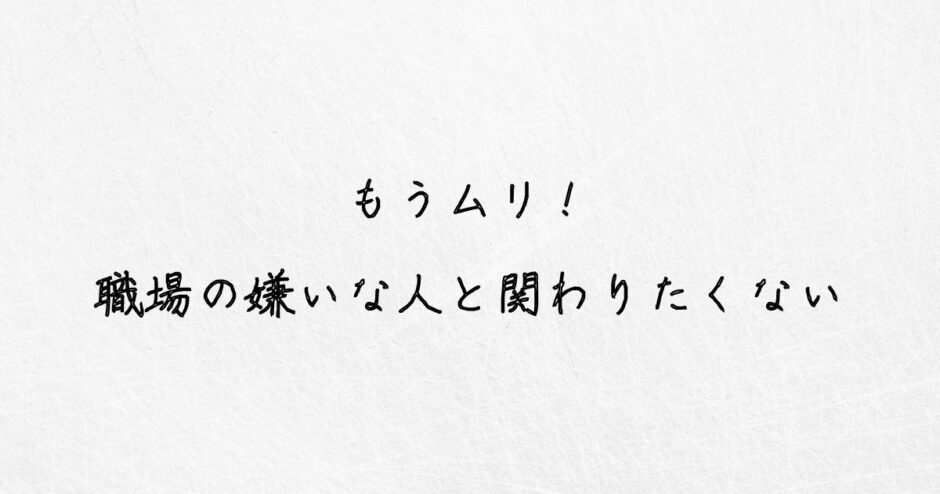 もうムリ！
職場の嫌いな人と関わりたくない